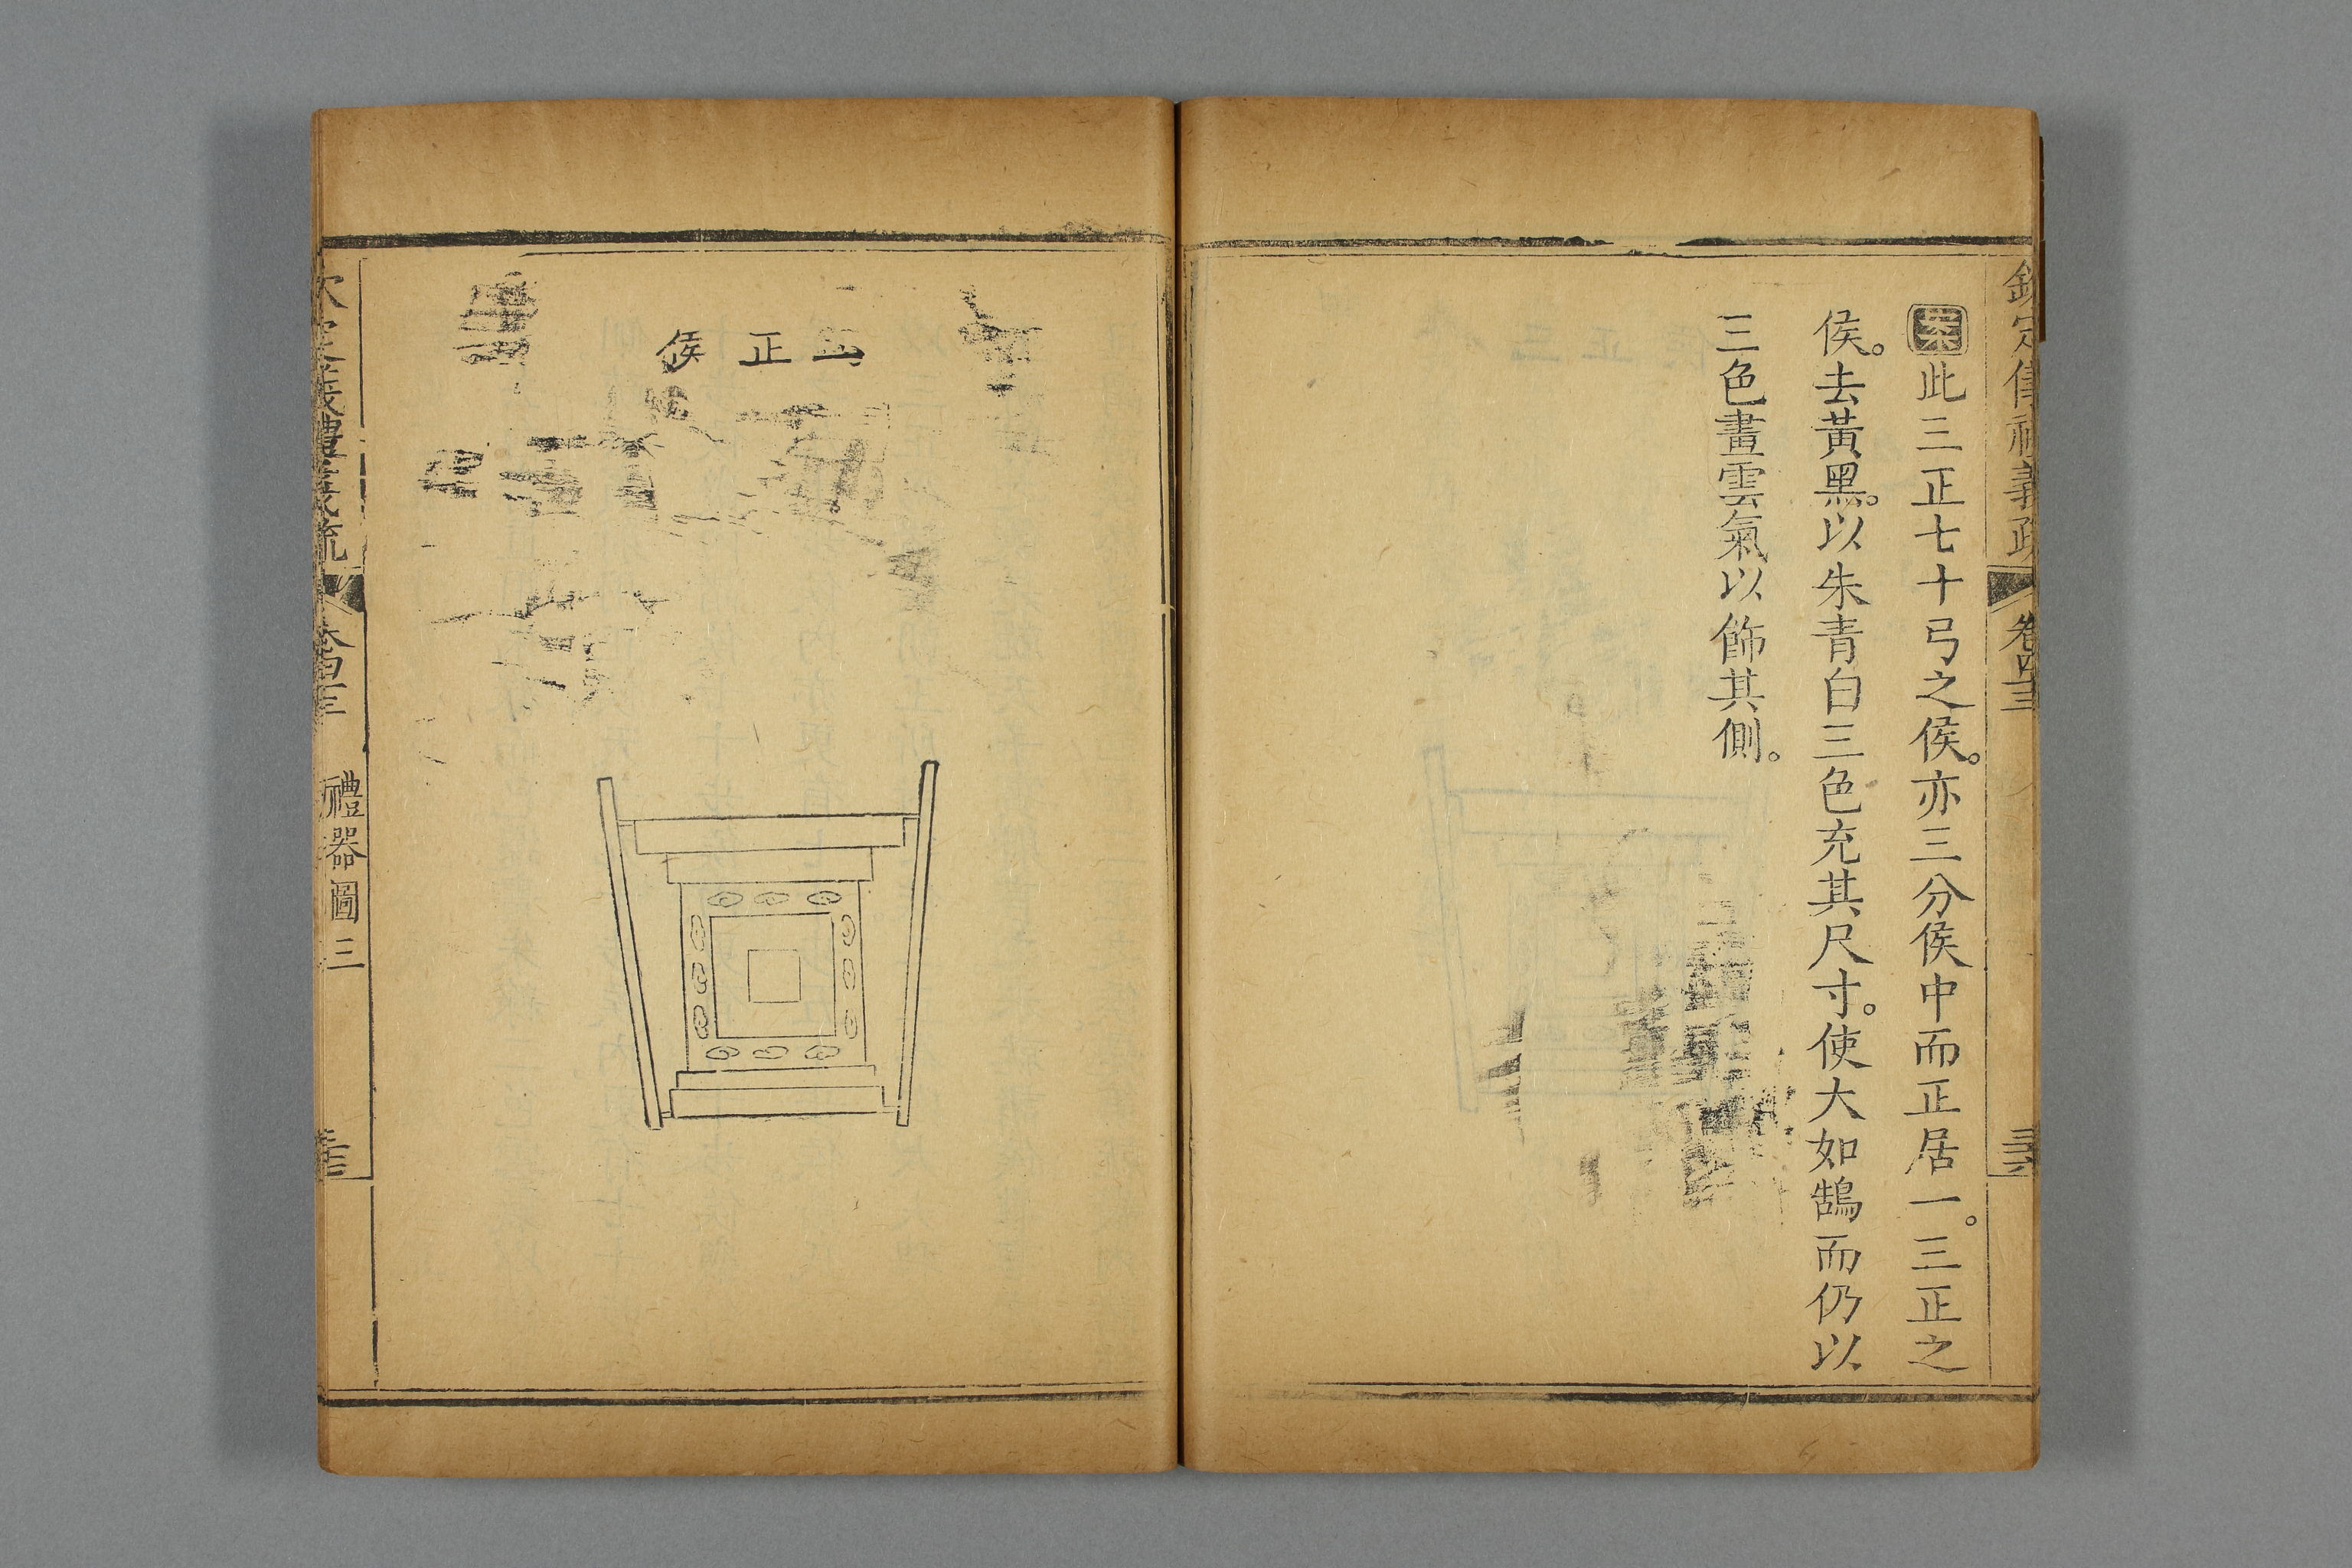 欽定儀禮義疏 卷四十三
案此三正七十弓之侯。亦三分侯中而正居一。三正之
侯。去黃黑。以朱青白三色充其尺寸。使大如鵠而仍以
三色畫雲氣以飾其側。
正侯
欽定儀禮義疏 卷四十三 禮器圖三